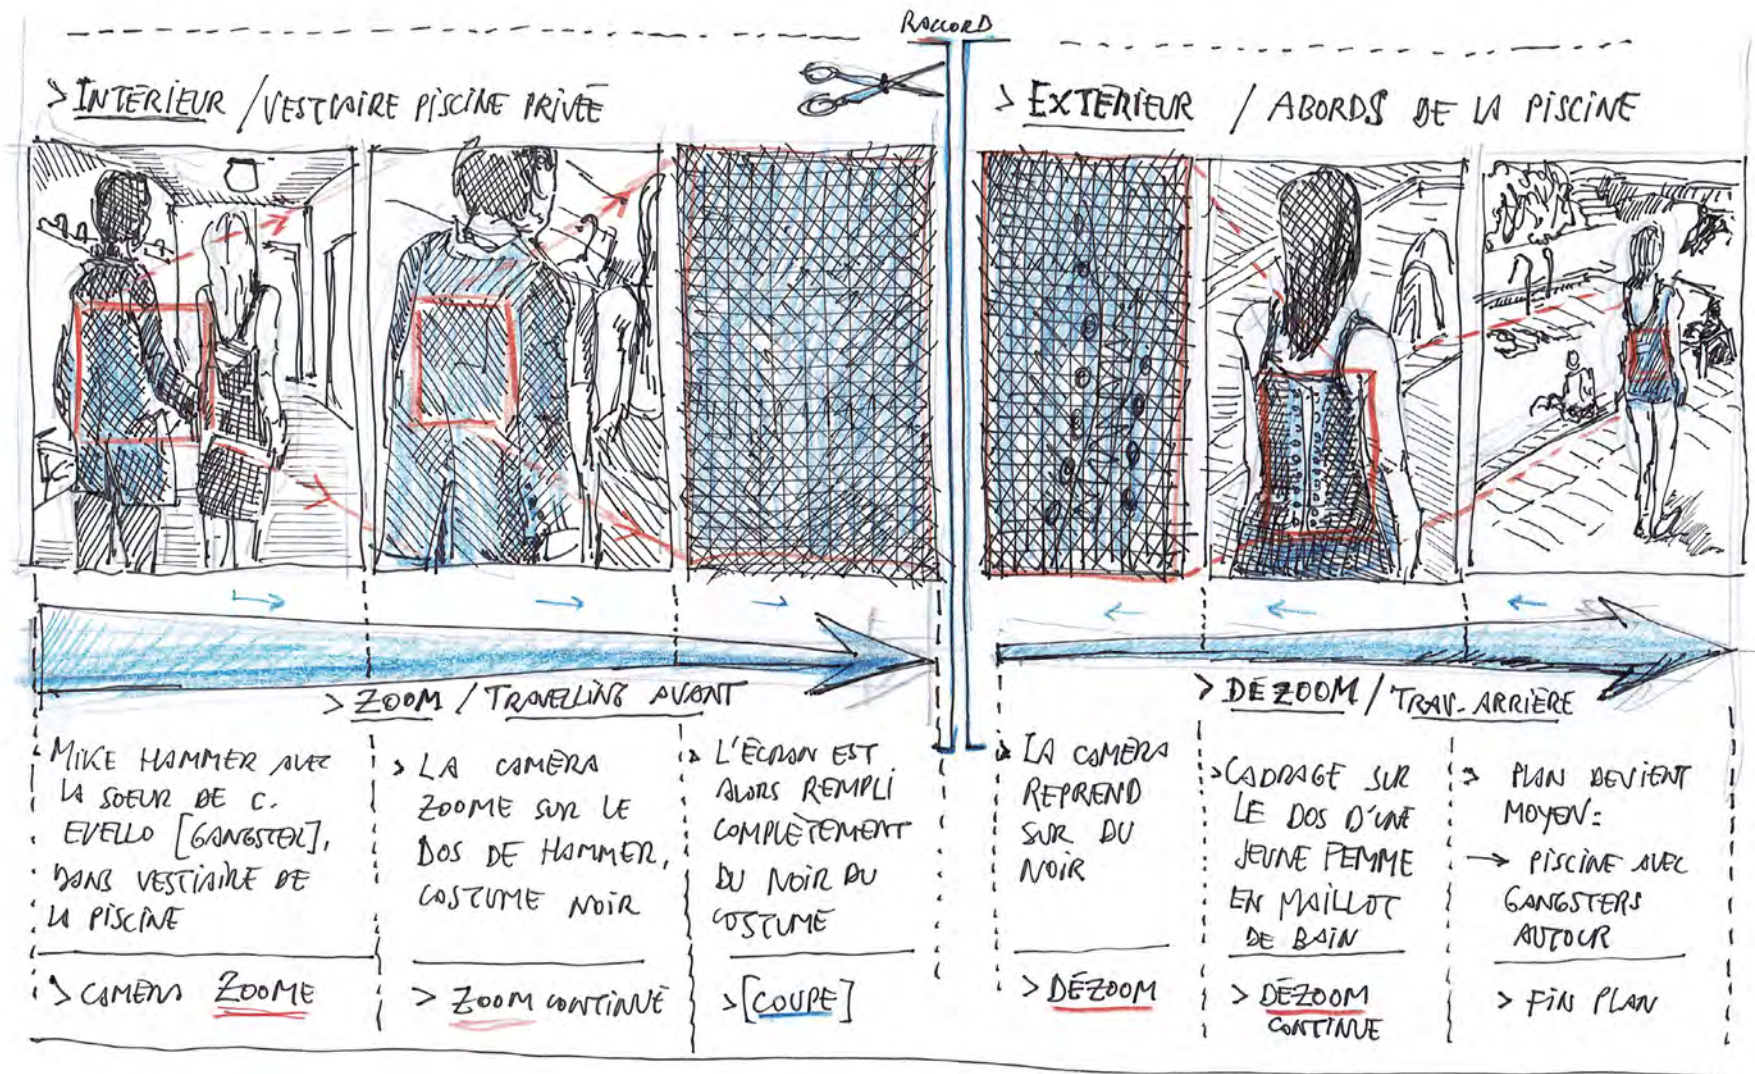 RACCORD
> INTÉRIEUR / VESTIAIRE PISCINE PRIVÉE
> EXTÉRIEUR / ABORDS DE LA PISCINE
> ZOOM / TRAVELLING AVANT
> DÉZOOM / TRAV. ARRIÈRE
MIKE HAMMER AVEC
LA SOEUR DE C.
EVELLO [GANGSTER],
DANS VESTIAIRE DE
LA PISCINE
> CAMÉRA ZOOME
> LA CAMÉRA
ZOOME SUR LE
DOS DE HAMMER,
COSTUME NOIR
> ZOOM CONTINUE
> L'ÉCRAN EST
ALORS REMPLI
COMPLÈTEMENT
DU NOIR DU
COSTUME
> [COUPE]
> LA CAMÉRA
REPREND
SUR DU
NOIR
> DÉZOOM
> CADRAGE SUR
LE DOS D'UNE
JEUNE FEMME
EN MAILLOT
DE BAIN
> DÉZOOM
CONTINUE
> PLAN DEVIENT
MOYEN:
→ PISCINE AVEC
GANGSTERS
AUTOUR
> FIN PLAN